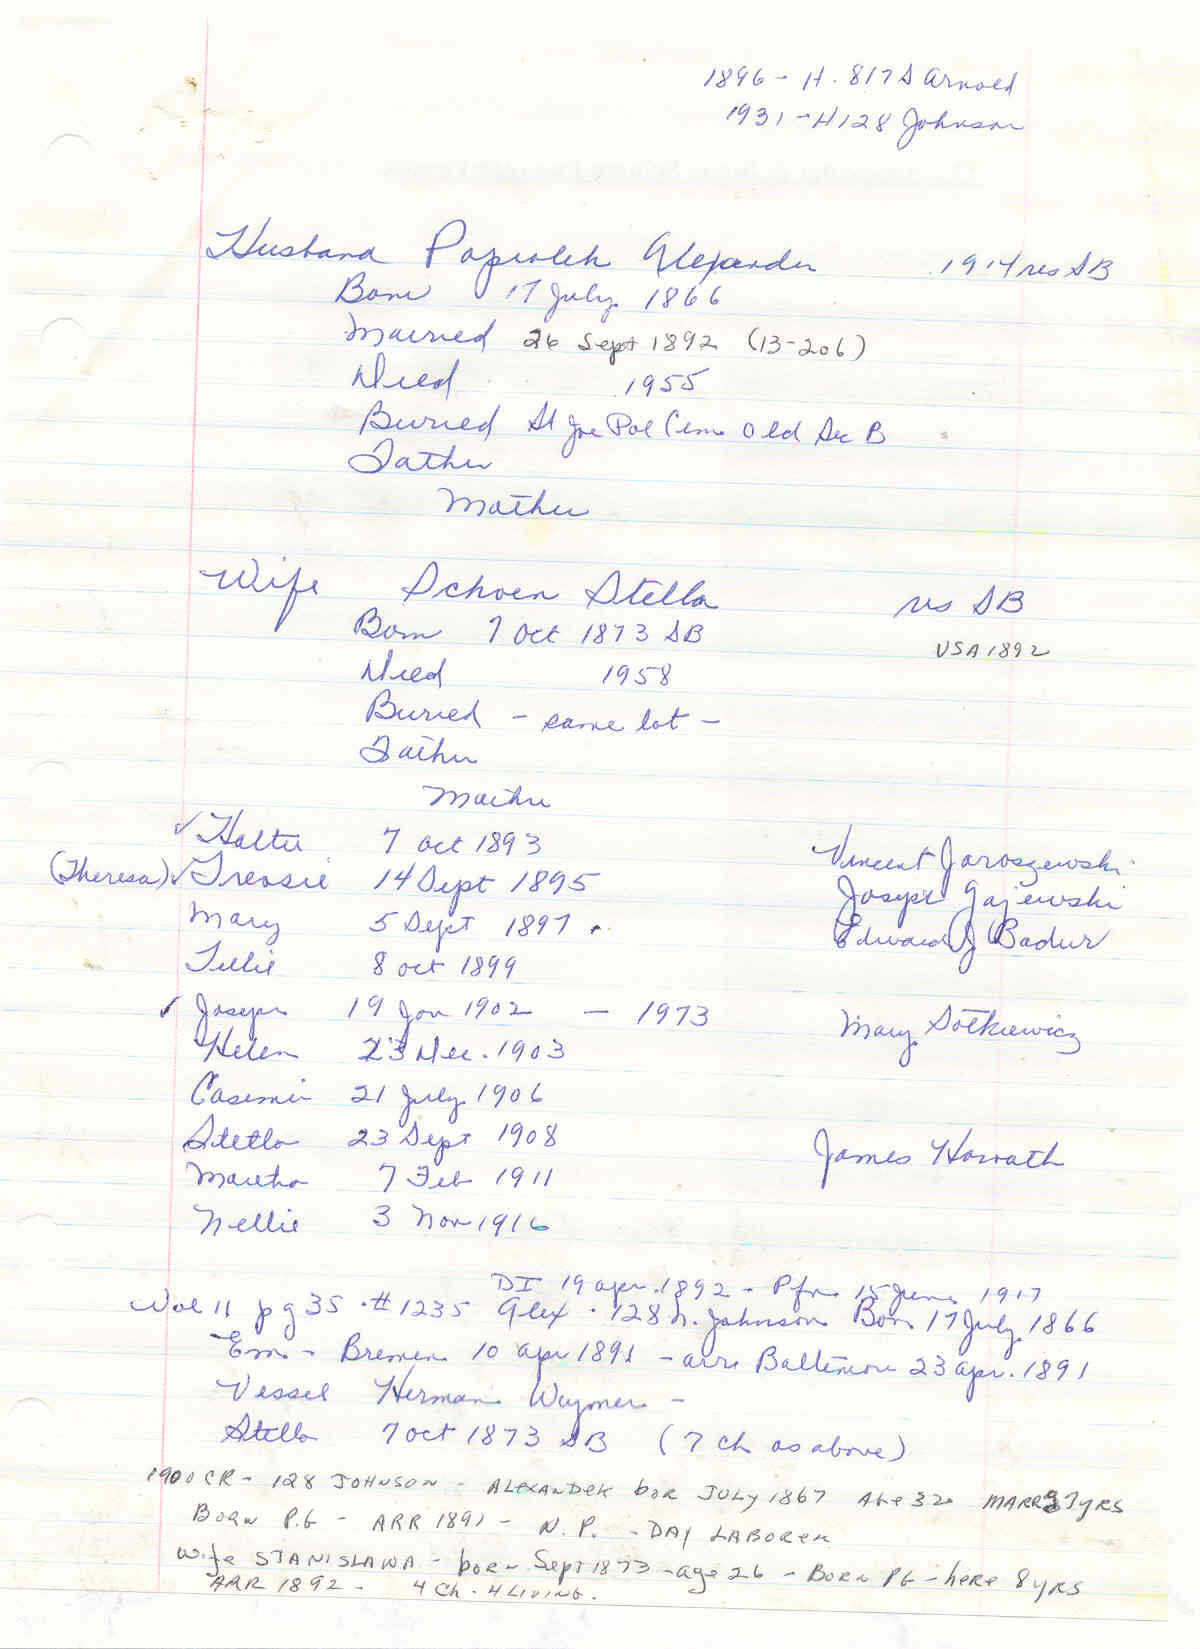 1896 - H. 817 S Arnold
1931 - H128 Johnson
Husband Papiolek Alexander 1914 res SB
Born 17 July 1866
Married 26 Sept 1892 (13-206)
Died 1955
Buried St Joe Pol Cem Old Sec B
Father
Mother
Wife Schoen Stella res SB
Born 7 Oct 1873 SB
USA 1892
Died 1958
Buried - same lot -
Father
Mother
✓ Hattie 7 Oct 1893 Vincent Jaroszewski
(Theresa) ✓ Treasie 14 Sept 1895 Joseph Gajewski
Mary 5 Sept 1897 Edward J Badur
Tillie 8 Oct 1899
✓ Joseph 19 Jan 1902 - 1973 Mary Sotkiewicz
Helen 23 Dec. 1903
Casimir 21 July 1906
Stella 23 Sept 1908 James Horvath
Martha 7 Feb 1911
Nellie 3 Nov 1916
DI 19 apr. 1892 - Pfn 15 June 1917
Vol 11 pg 35 . # 1235 Alex . 128 N. Johnson Born 17 July 1866
Em - Bremen 10 apr 1891 - arr Baltimore 23 apr. 1891
Vessel Herman Waymer -
Stella 7 Oct 1873 SB (7 ch as above)
1900 CR - 128 JOHNSON - ALEXANDER bor JULY 1867 AGE 32 MARR 7 yRS
BORN P.G - ARR 1891 - N.P. - DAY LABORER
Wife STANISLAWA - born Sept 1873 - age 26 - BORN PG - here 8 yRS
ARR 1892 - 4 Ch . 4 LIVING.